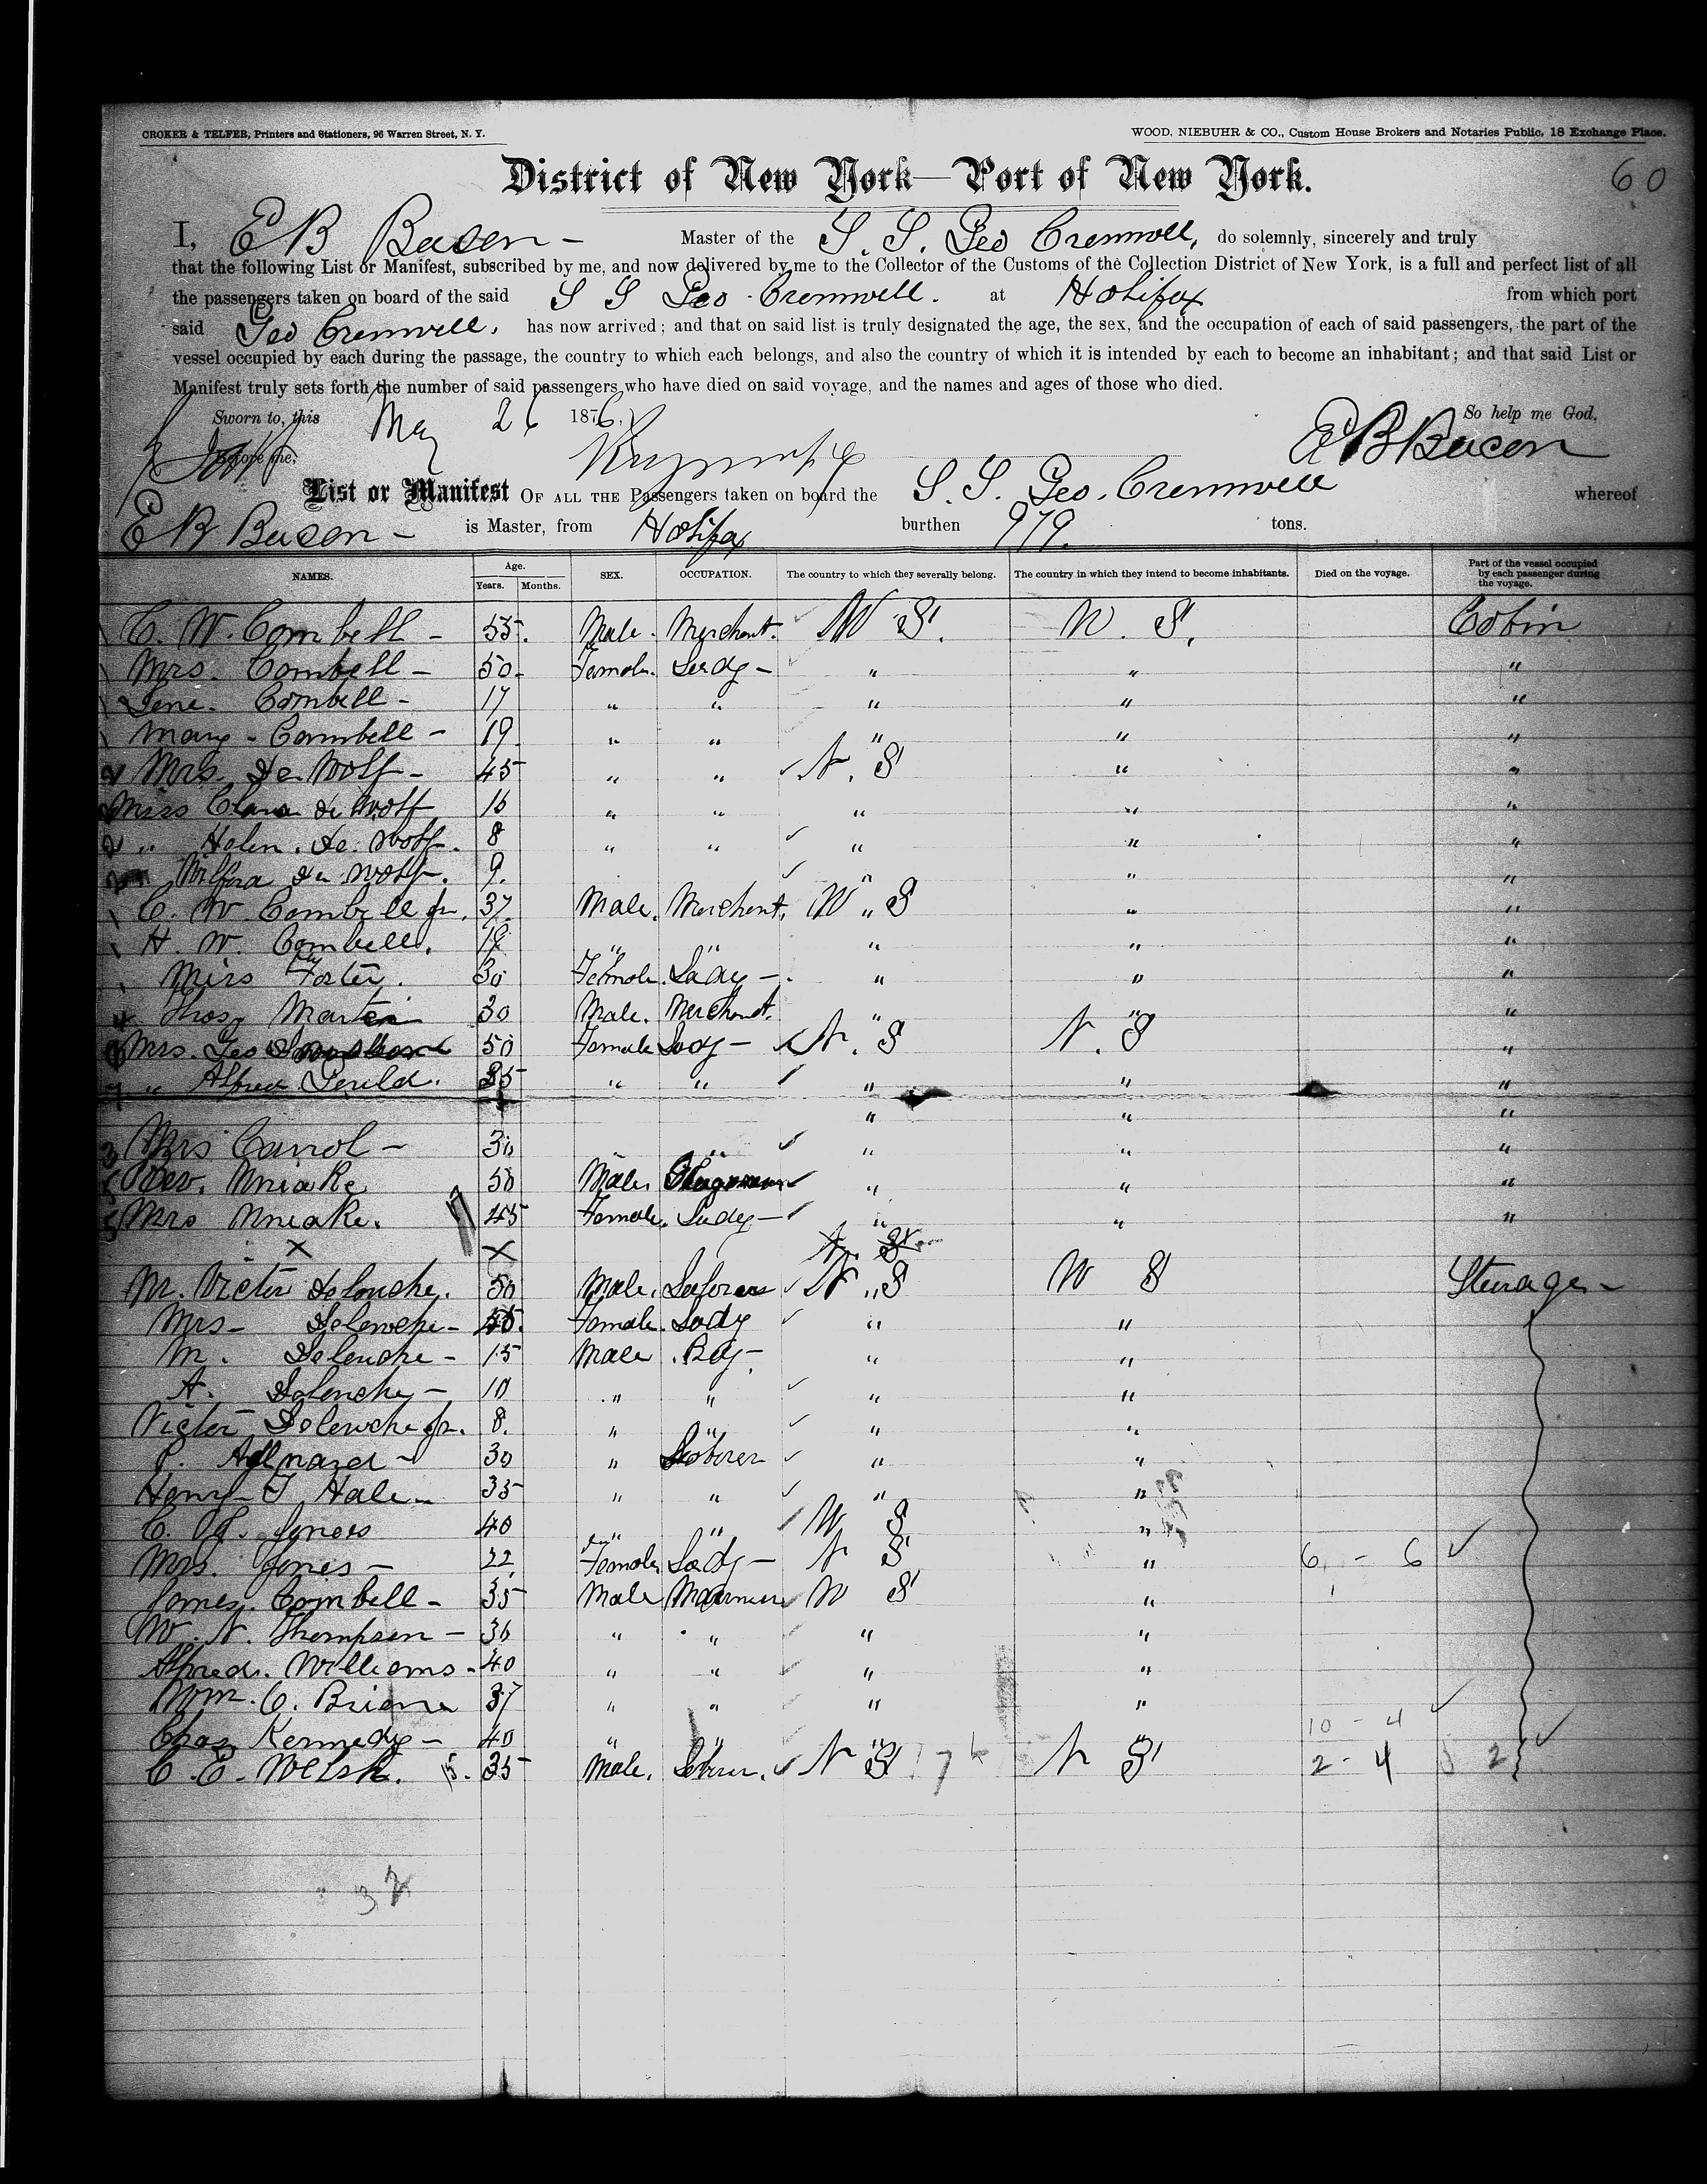 CROKER & TELFER, Printers and Stationers, 96 Warren Street, N. Y. WOOD, NIEBUHR & CO., Custom House Brokers and Notaries Public, 18 Exchange Place.
60
District of New York—Port of New York.
I, E B Bacon - Master of the S. S. Geo Cromwell, do solemnly, sincerely and truly
that the following List or Manifest, subscribed by me, and now delivered by me to the Collector of the Customs of the Collection District of New York, is a full and perfect list of all
the passengers taken on board of the said S S Geo. Cromwell. at Halifax from which port
said Geo Cromwell, has now arrived; and that on said list is truly designated the age, the sex, and the occupation of each of said passengers, the part of the
vessel occupied by each during the passage, the country to which each belongs, and also the country of which it is intended by each to become an inhabitant; and that said List or
Manifest truly sets forth the number of said passengers who have died on said voyage, and the names and ages of those who died.
Sworn to, this May 26 1876, So help me God,
Before me, E B Bacon
List or Manifest OF ALL THE Passengers taken on board the S. S. Geo. Cromwell whereof
E B Bacon - is Master, from Halifax burthen 979. tons.
NAMES. Age. Years. Months. SEX. OCCUPATION. The country to which they severally belong. The country in which they intend to become inhabitants. Died on the voyage. Part of the vessel occupied by each passenger during the voyage.
C. W. Combell - 55. Male. Merchant. U S. U. S. Cabin
Mrs. Combell - 50. Female. Lady - " " "
Combell - 17 " " " " "
Mary - Combell - 19 " " " " "
2 Mrs. De Wolf - 45 " " N. S " "
Miss Clara De Wolf 16 " " " " "
2 " Helen. De. Wolf. 8 " " " " "
De Wolf. 9. " " "
C. W. Combell Jr. 37. Male. Merchant, U " S " "
H. W. Combell. " " " " "
Miss Foster. 30 Female. Lady - " " "
4 Thos Martin 30 Male. Merchant. " " "
Mrs. Geo 50 Female Lady - N. S N. S "
" Alfred 35 " " " " "
" " "
3 Mrs Carrol - 30 " " " " "
5 Rev. 50 Male. " " "
5 Mrs 17 45 Female. Lady - " " "
x x
M. Victor Delouche. 50 Male. Laborer N " S U S Steerage -
Mrs - Delouche - Female. Lady " "
M. Delouche - 15 Male. Boy - " "
A. Delouche - 10 " " " "
Victor Delouche Jr. 8. " " " "
P. 30 " Laborer " "
Henry T Hale - 35 " " " "
C. Jones 40 " " U S "
Mrs. Jones - 22 Female. Lady - N S " 6 - 6
James. Combell - 35 Male Mariner U S "
W. N. Thompson - 36 " " " "
Alfred. Williams - 40 " " " "
Wm. O. Briene 37 " " " "
Chas Kennedy - 40 " " " " 10 - 4
C. E. Welsh. 15. 35 Male. Laborer. N S N S 2 - 4 2
32